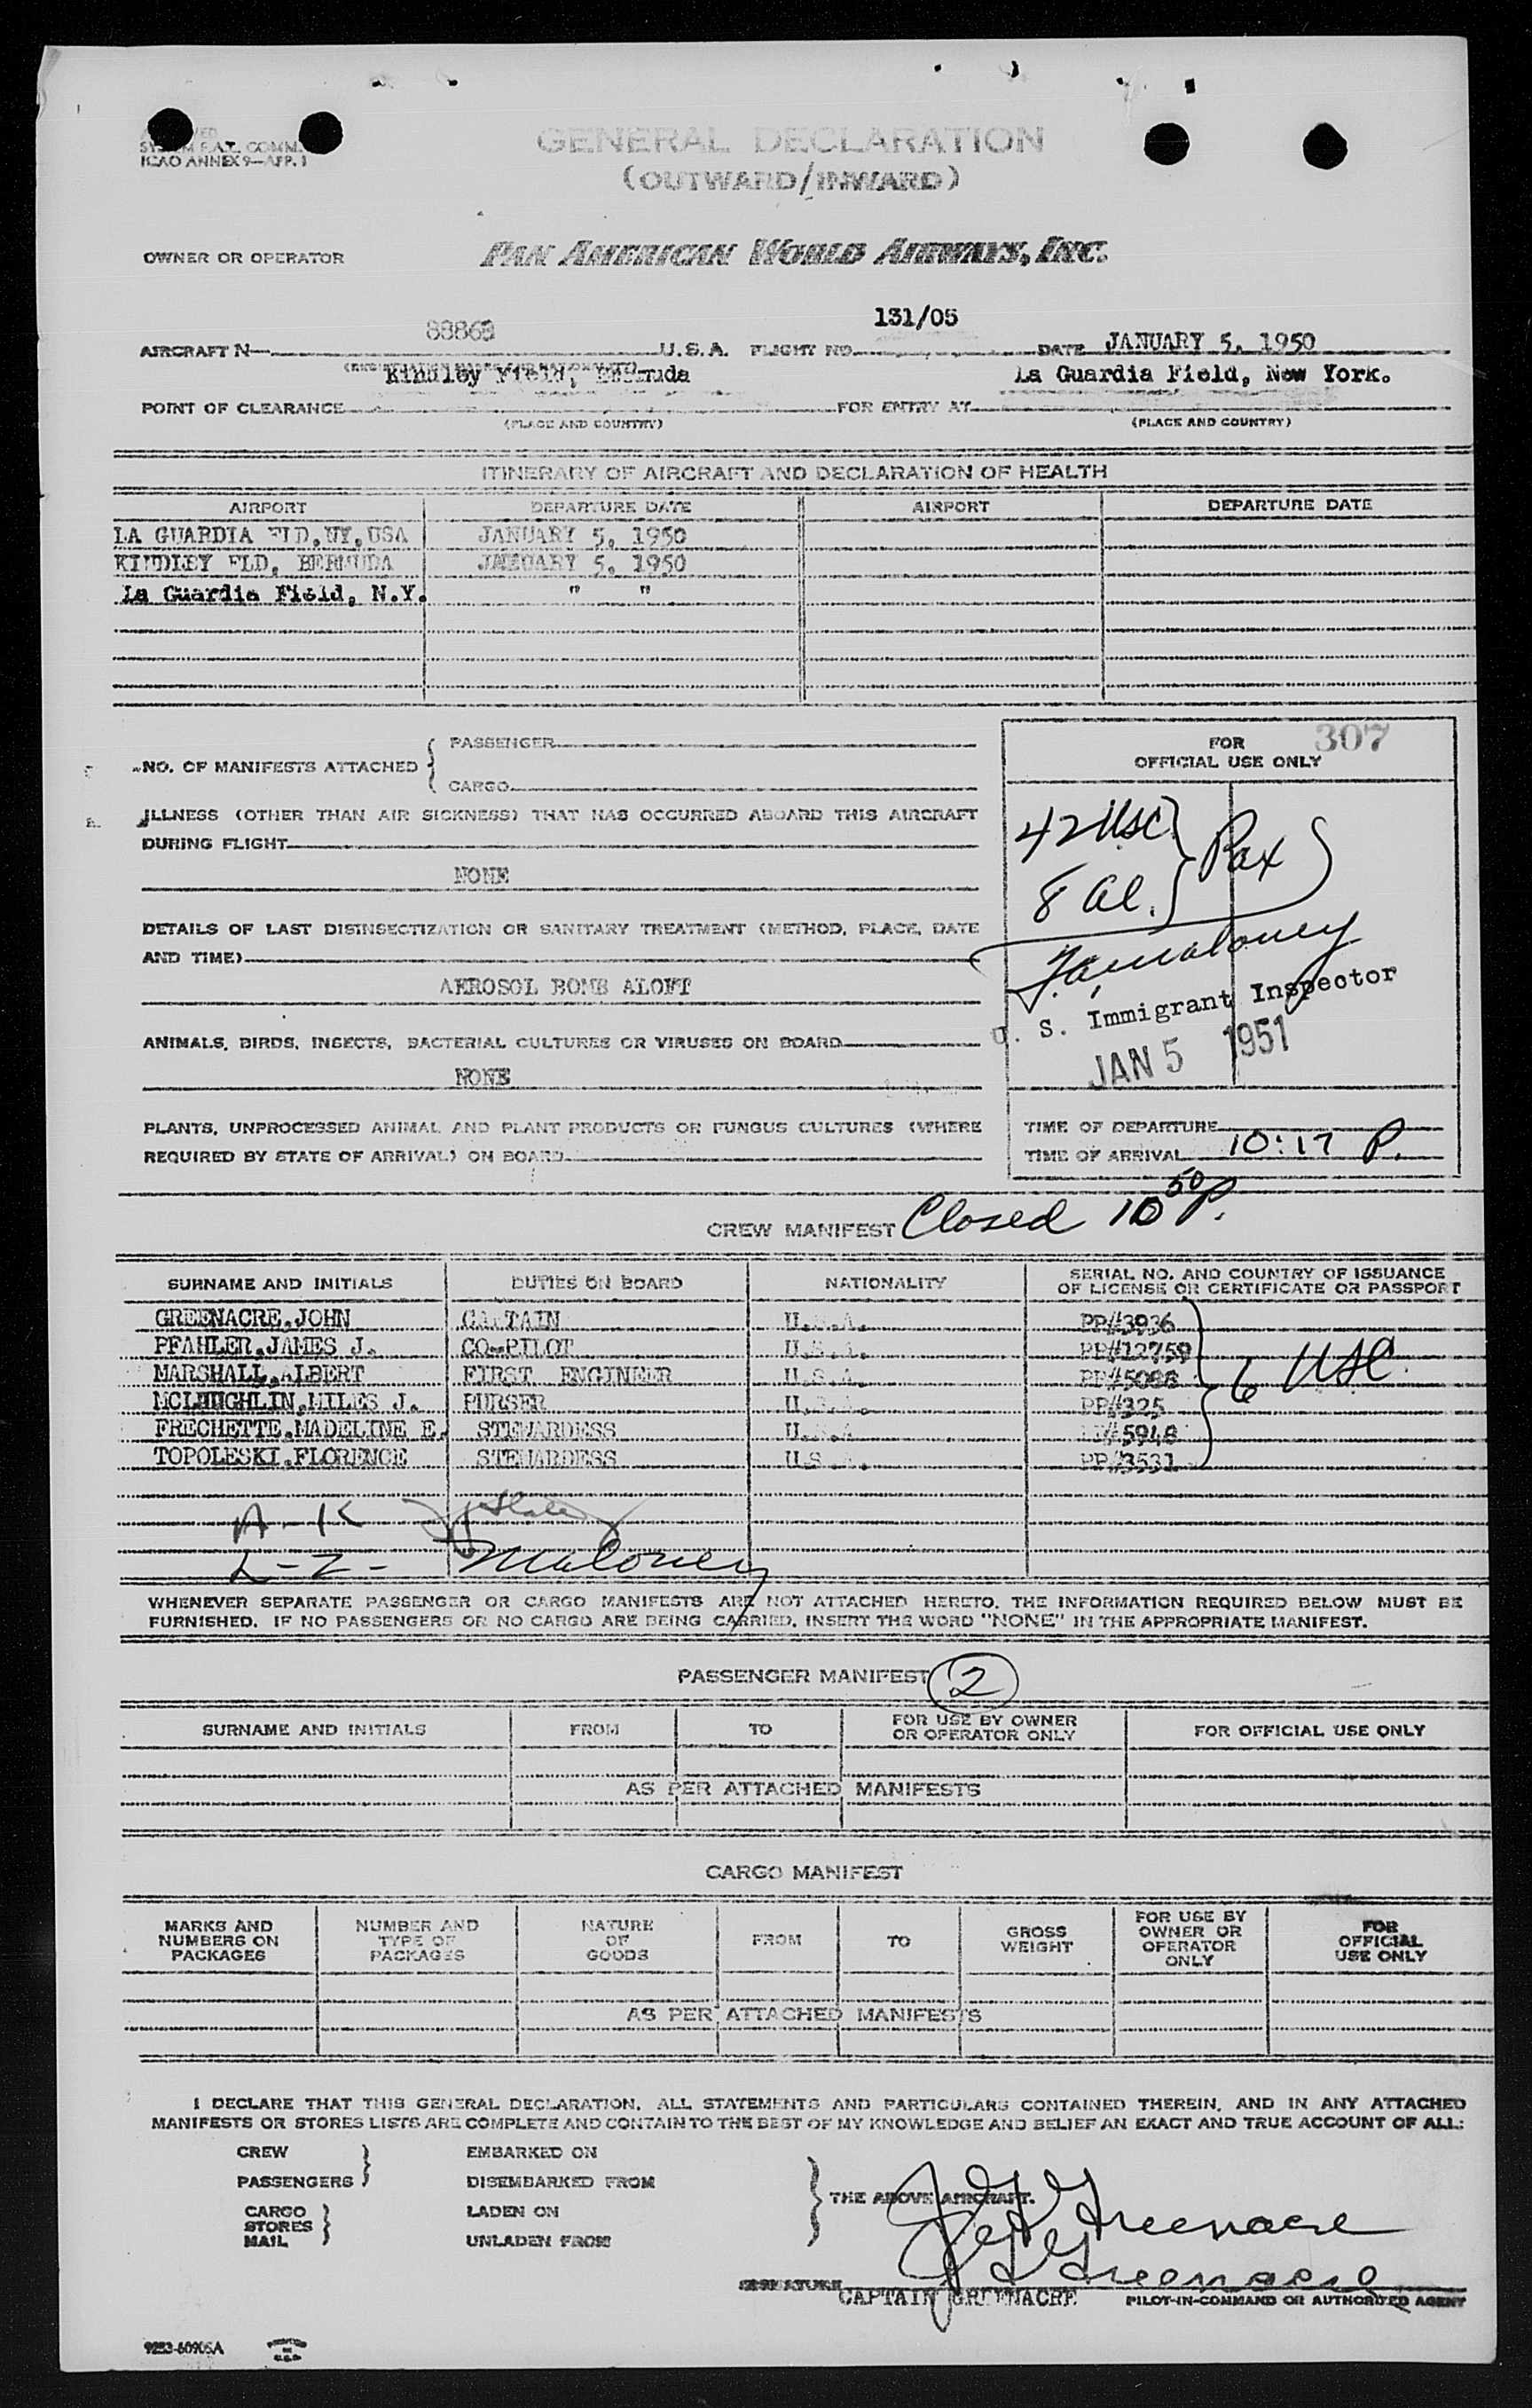 SYSTEM F.A.L. COMM.
ICAO ANNEX 9—APP. 1
GENERAL DECLARATION
(OUTWARD/INWARD)
OWNER OR OPERATOR PAN AMERICAN WORLD AIRWAYS, INC.
131/05
AIRCRAFT N— U.S.A. FLIGHT NO. DATE JANUARY 5, 1950
Kindley Field, Bermuda La Guardia Field, New York.
POINT OF CLEARANCE FOR ENTRY AT
(PLACE AND COUNTRY) (PLACE AND COUNTRY)
ITINERARY OF AIRCRAFT AND DECLARATION OF HEALTH
AIRPORT DEPARTURE DATE AIRPORT DEPARTURE DATE
LA GUARDIA FLD,NY,USA JANUARY 5, 1950
KINDLEY FLD, BERMUDA JANUARY 5, 1950
La Guardia Field, N.Y. " "
NO. OF MANIFESTS ATTACHED { PASSENGER
CARGO
ILLNESS (OTHER THAN AIR SICKNESS) THAT HAS OCCURRED ABOARD THIS AIRCRAFT
DURING FLIGHT
NONE
DETAILS OF LAST DISINSECTIZATION OR SANITARY TREATMENT (METHOD, PLACE, DATE
AND TIME)
AEROSOL BOMB ALOFT
ANIMALS, BIRDS, INSECTS, BACTERIAL CULTURES OR VIRUSES ON BOARD
NONE
PLANTS, UNPROCESSED ANIMAL AND PLANT PRODUCTS OR FUNGUS CULTURES (WHERE
REQUIRED BY STATE OF ARRIVAL) ON BOARD
FOR 307
OFFICIAL USE ONLY
42 USC } Pax
8 Al.
Maloney
U. S. Immigrant Inspector
JAN 5 1951
TIME OF DEPARTURE
TIME OF ARRIVAL 10:17 P.
CREW MANIFEST Closed 10 50 P.
SURNAME AND INITIALS DUTIES ON BOARD NATIONALITY SERIAL NO. AND COUNTRY OF ISSUANCE
OF LICENSE OR CERTIFICATE OR PASSPORT
GREENACRE,JOHN CAPTAIN U.S.A. PP#3936
PFAHLER,JAMES J. CO-PILOT U.S.A. PP#12759
MARSHALL,ALBERT FIRST ENGINEER U.S.A. PP#5088 6 USC
MCLAUGHLIN,MILES J. PURSER U.S.A. PP#325
FRECHETTE,MADELINE E. STEWARDESS U.S.A. PP#5948
TOPOLESKI,FLORENCE STEWARDESS U.S.A. PP#3531
A-K
L-Z- Maloney
WHENEVER SEPARATE PASSENGER OR CARGO MANIFESTS ARE NOT ATTACHED HERETO, THE INFORMATION REQUIRED BELOW MUST BE
FURNISHED. IF NO PASSENGERS OR NO CARGO ARE BEING CARRIED, INSERT THE WORD "NONE" IN THE APPROPRIATE MANIFEST.
PASSENGER MANIFEST 2
SURNAME AND INITIALS FROM TO FOR USE BY OWNER
OR OPERATOR ONLY FOR OFFICIAL USE ONLY
AS PER ATTACHED MANIFESTS
CARGO MANIFEST
MARKS AND
NUMBERS ON
PACKAGES
NUMBER AND
TYPE OF
PACKAGES
NATURE
OF
GOODS
FROM
TO
GROSS
WEIGHT
FOR USE BY
OWNER OR
OPERATOR
ONLY
FOR
OFFICIAL
USE ONLY
AS PER ATTACHED MANIFESTS
I DECLARE THAT THIS GENERAL DECLARATION, ALL STATEMENTS AND PARTICULARS CONTAINED THEREIN, AND IN ANY ATTACHED
MANIFESTS OR STORES LISTS ARE COMPLETE AND CONTAIN TO THE BEST OF MY KNOWLEDGE AND BELIEF AN EXACT AND TRUE ACCOUNT OF ALL:
CREW EMBARKED ON
PASSENGERS DISEMBARKED FROM
THE ABOVE AIRCRAFT.
CARGO LADEN ON
STORES
MAIL UNLADEN FROM
Greenacre
Greenacre
SIGNATURE
CAPTAIN GREENACRE PILOT-IN-COMMAND OR AUTHORIZED AGENT
PRINTED
IN
U.S.A.